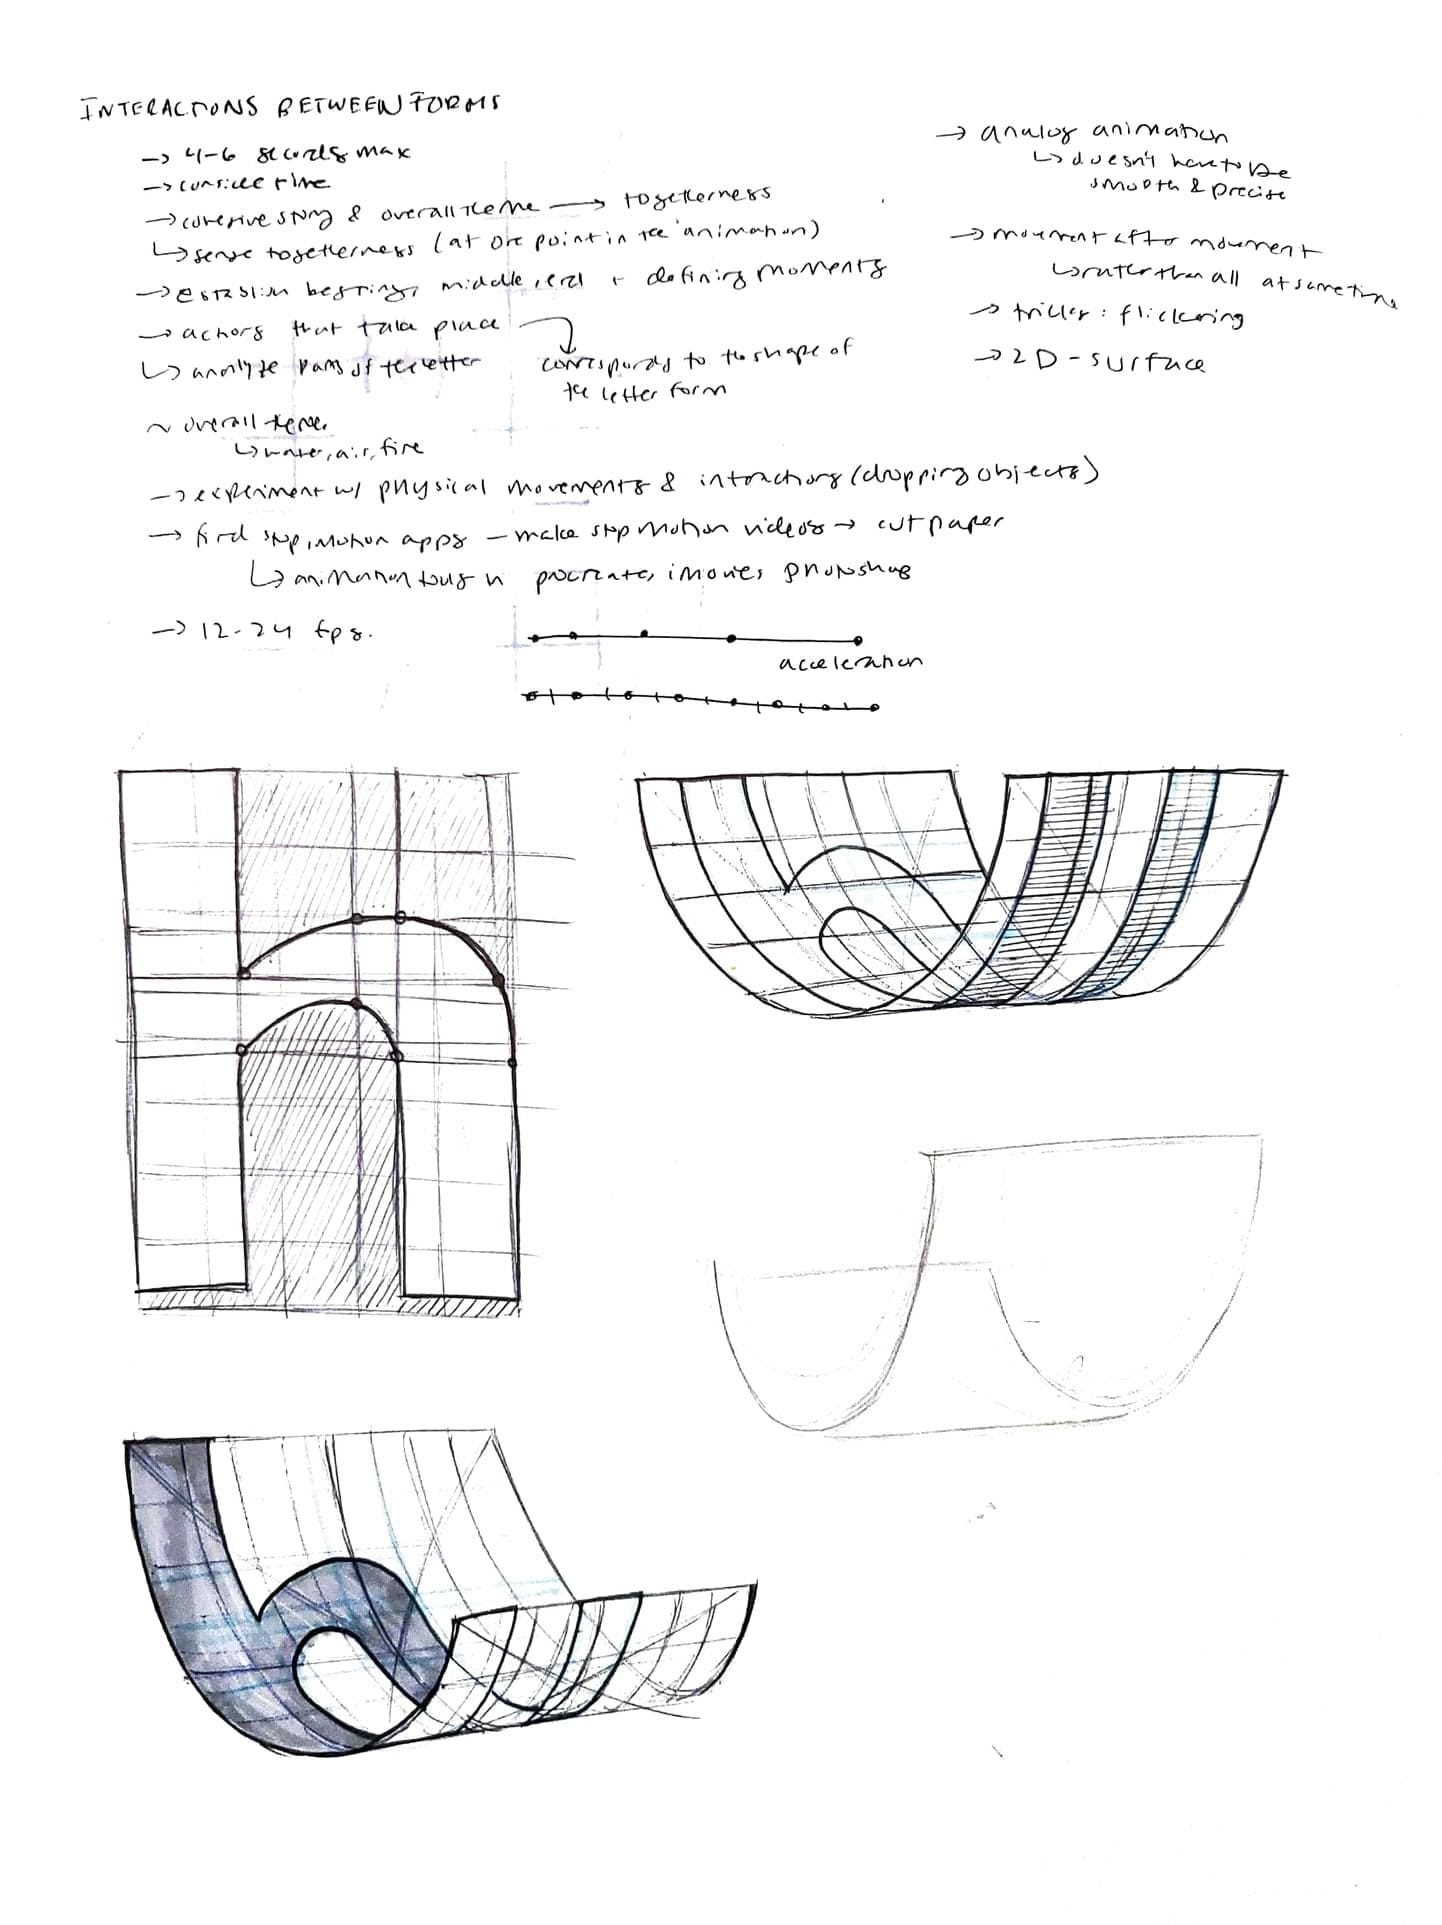 INTERACTIONS BETWEEN FORMS
→ 4-6 seconds max
→ consider time
→ cohesive story & overall theme → togetherness
↳ sense togetherness (at one point in the animation)
→ establish beginning, middle, end + defining moments
→ actions that take place
↳ analyze parts of the letter
corresponds to the shape of
the letter form
~ overall theme
↳ water, air, fire
→ experiment w/ physical movements & interactions (dropping objects)
→ find stop motion apps – make stop motion videos → cut paper
↳ animation tools in procreate, imovies photoshop
→ 12-24 fps.
acceleration
→ analog animation
↳ doesn't have to be
smooth & precise
→ movement after movement
↳ rather than all at same time
→ : flickering
→ 2D - surface